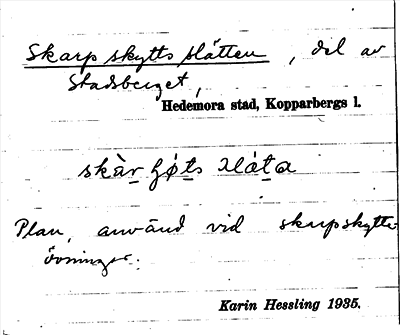 Skarpskyttsslätten, del av
Stadsberget,
Hedemora stad, Kopparbergs l.
Plan, använd vid skarpskytte-
övningar.
Karin Hessling 1935.